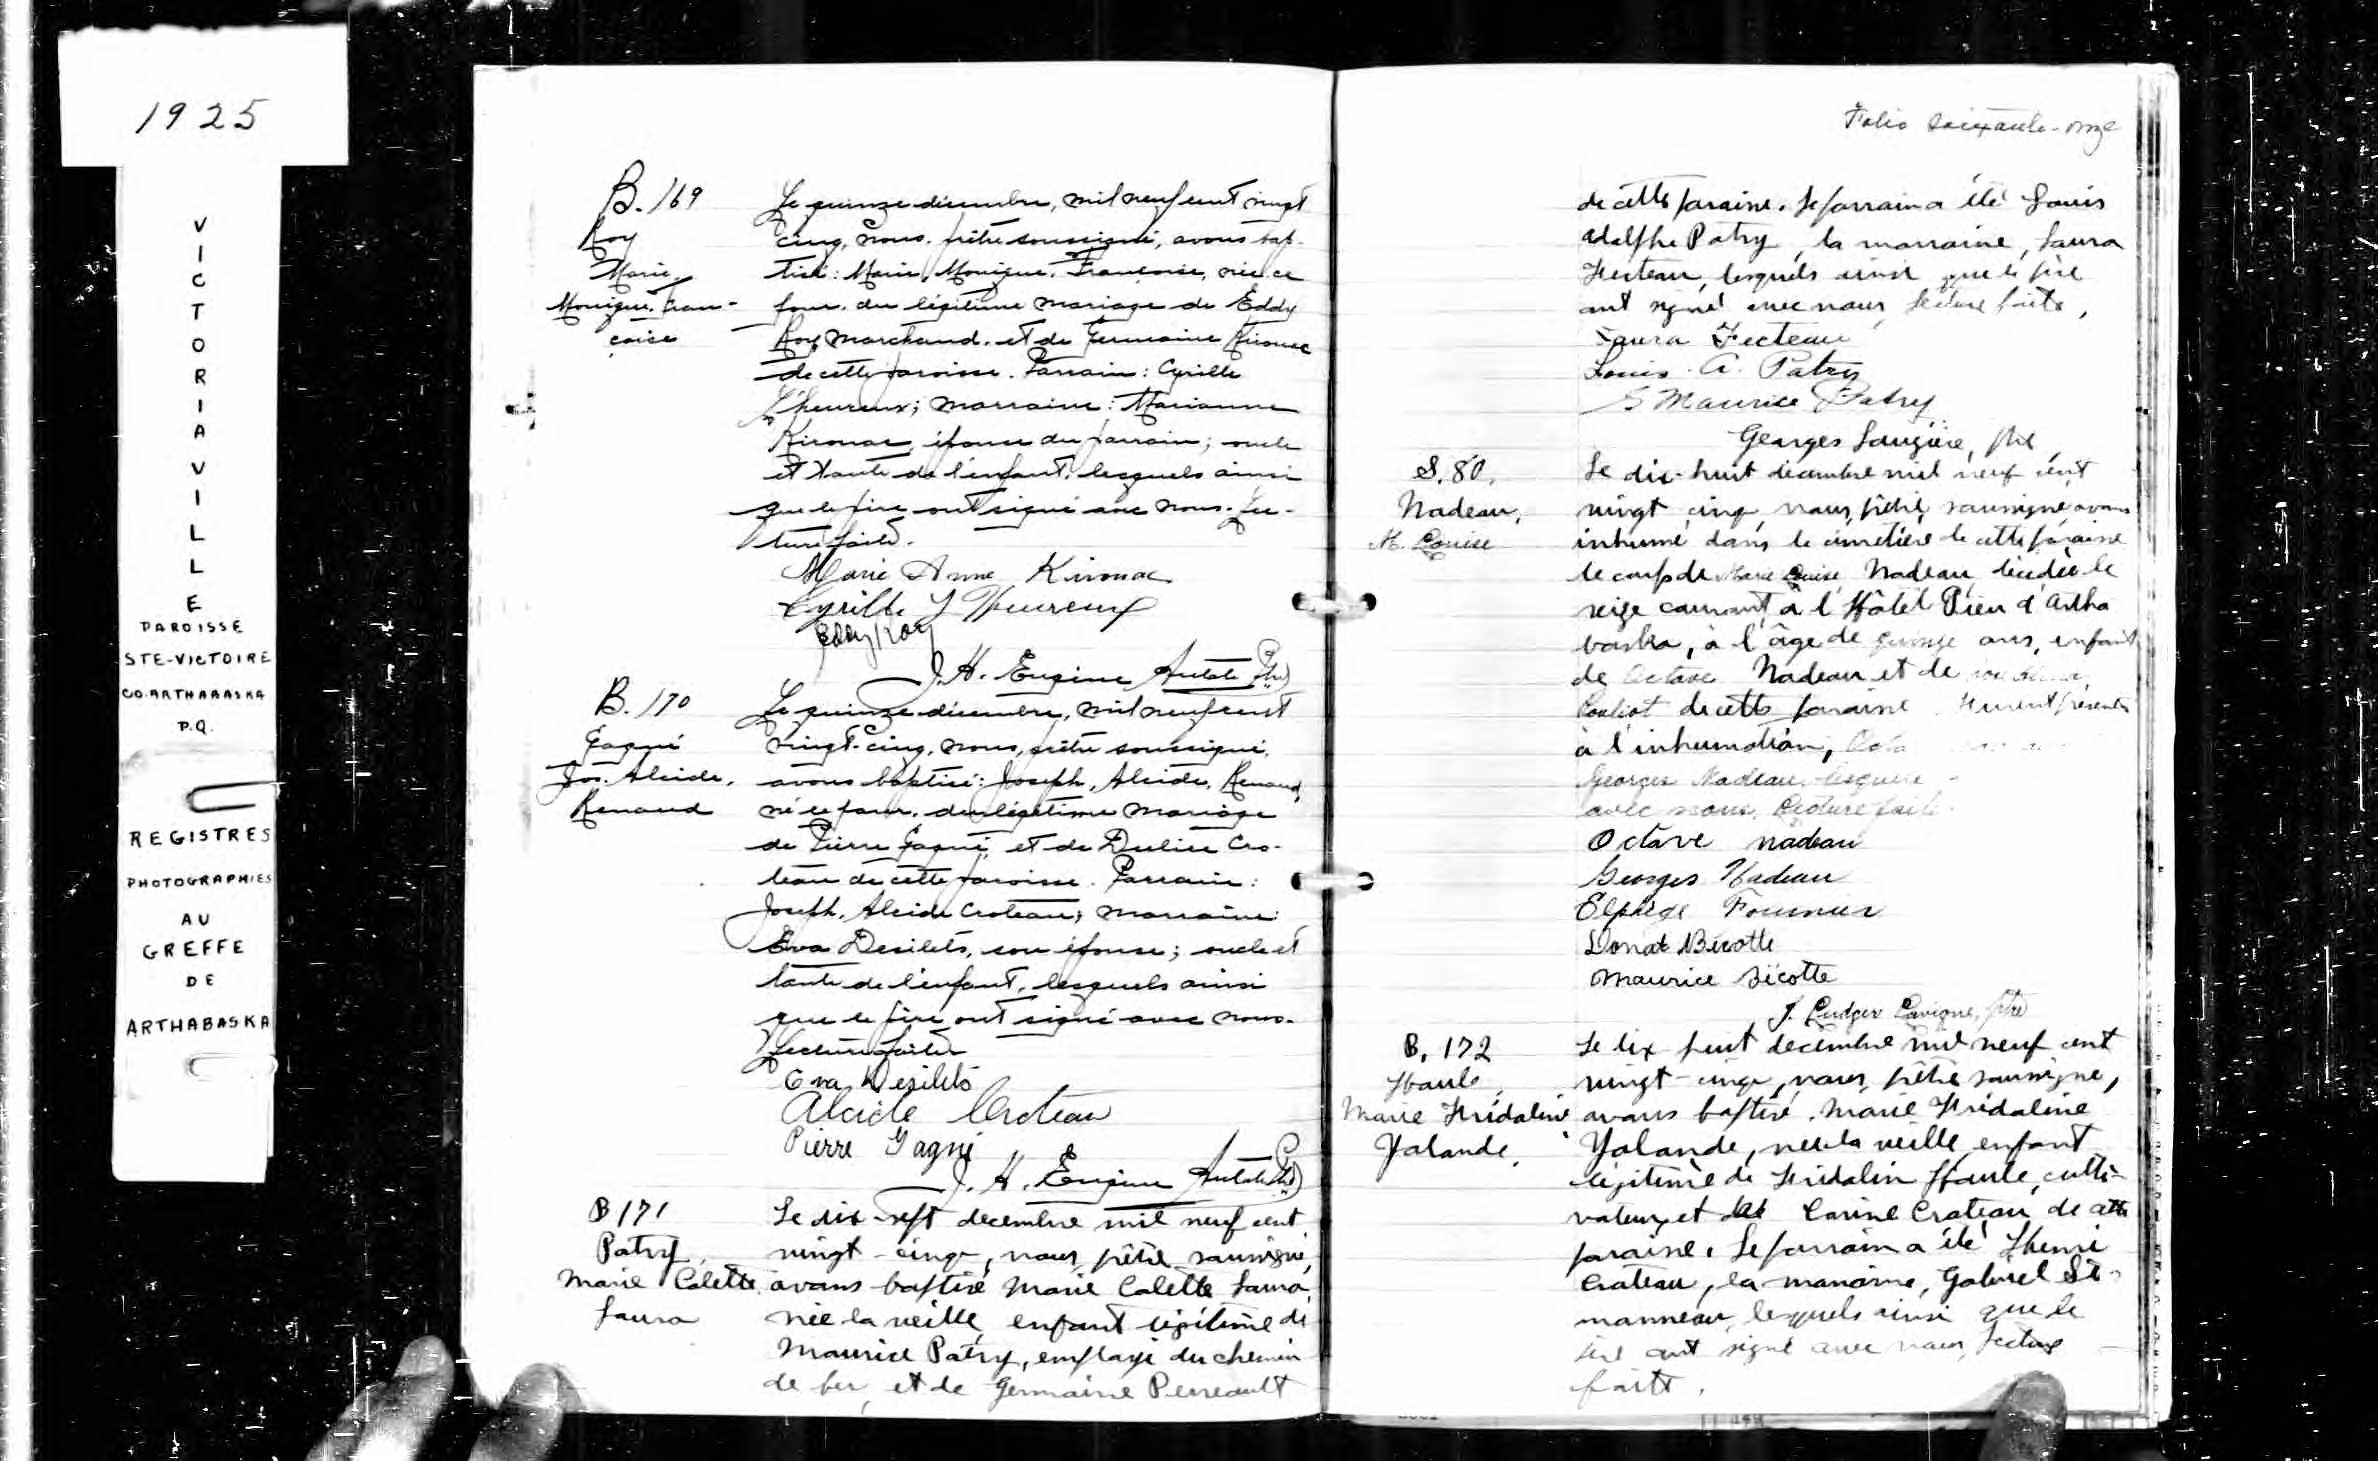 1925
VICTORIAVILLE
PAROISSE
STE-VICTOIRE
CO. ARTHABASKA
P.Q.
REGISTRES
PHOTOGRAPHIES
AU
GREFFE
DE
ARTHABASKA
B. 169
Roy
Marie
Monique, Fran-
çoise
Le quinze décembre, mil neuf cent vingt
cinq, nous, prêtre soussigné, avons bap-
tisé: Marie, Monique, Françoise, née ce
jour, du légitime mariage de Eddy
Roy, marchand, et de Germaine Kirouac
de cette paroisse. Parrain: Cyrille
L'heureux; marraine: Marianne
Kirouac, épouse du parrain; oncle
et tante de l'enfant, lesquels ainsi
que le père ont signé avec nous. Lec-
ture faite.
Marie Anne Kirouac
Cyrille L'Heureux
Eddy Roy
J. H. Eugène Ptre
B. 170
Gagné
Jos. Alcide,
Renaud
Le quinze décembre, mil neuf cent
vingt-cinq, nous, prêtre soussigné,
avons baptisé: Joseph, Alcide, Renaud,
né ce jour, du légitime mariage
de Pierre Gagné, et de Délice Cro-
teau de cette paroisse. Parrain:
Joseph, Alcide Croteau; marraine:
Eva Desilets, son épouse; oncle et
tante de l'enfant, lesquels ainsi
que le père ont signé avec nous.
Lecture faite
Eva Desilets
Alcide Croteau
Pierre Gagné
J. H. Eugène Ptre
B 171
Patry,
Marie Colette
Laura
Le dix-sept décembre mil neuf cent
vingt-cinq, nous, prêtre soussigné,
avons baptisé Marie Colette Laura,
née la veille, enfant légitime de
Maurice Patry, employé du chemin
de fer, et de Germaine Perreault
Folio soixante-onze
de cette paroisse. Le parrain a été Louis
Adolphe Patry, la marraine, Laura
Fecteau, lesquels ainsi que le père
ont signé avec nous, lecture faite,
Laura Fecteau
Louis. A. Patry
S Maurice Patry
Georges Laugière, ptre
S. 80,
Nadeau,
M. Louise
Le dix-huit décembre mil neuf cent
vingt cinq, nous, prêtre soussigné, avons
inhumé dans le cimetière de cette paroisse
le corps de Marie Louise Nadeau, décédée le
seize courant, à l'Hôtel Dieu d'Artha
baska, à l'âge de quinze ans, enfant
de Octave Nadeau et de
Pouliot de cette paroisse. Furent présents
à l'inhumation,
Georges Nadeau, lesquels
avec nous. Lecture faite.
Octave Nadeau
Georges Nadeau
Elphège Fournier
Donat Bécotte
Maurice Bécotte
J. Ludger Lavigne, ptre
B. 172
Houle,
Marie Fridoline
Yolande,
Le dix huit décembre mil neuf cent
vingt-cinq, nous, prêtre soussigné,
avons baptisé, Marie Fridoline
Yolande, née la veille, enfant
légitime de Fridolin Houle, culti-
vateur, et de Corine Croteau, de cette
paroisse. Le parrain a été Henri
Croteau, la marraine, Gabriel Si-
manneau, lesquels ainsi que le
père ont signé avec nous, lecture
faite.